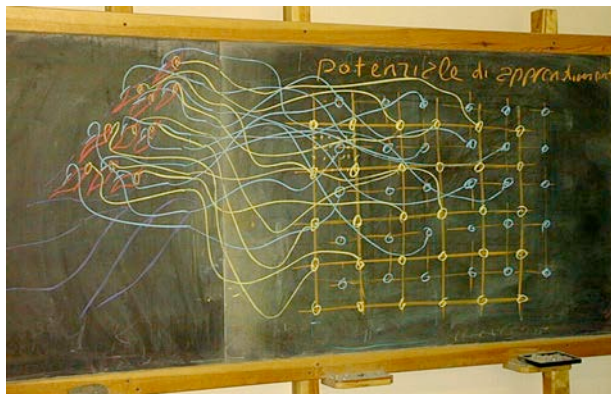 potenziale di apprendimen